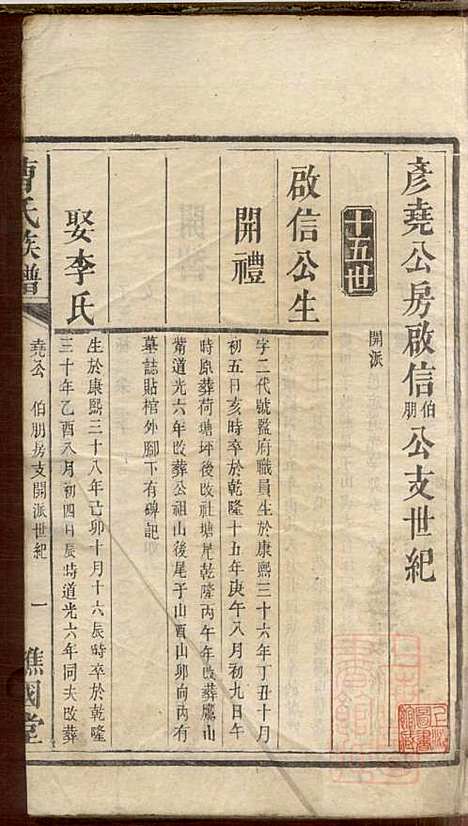 彥堯公房啟信伯朋公支世紀
十五世
開派
啟信公生
開禮
字二代號盈府職員生於康熙三十六年丁丑十月
初五日亥時卒於乾隆十五年庚午八月初九日午
時原葬荷塘坪後改社塘尾乾隆丙午年改葬鷹山
觜道光六年改葬公祖山後尾子山酉山卯向內有
墓誌貼棺外腳下有碑記
娶李氏
生於康熙三十八年己卯十月十六辰時卒於乾隆
三十年乙酉八月初四日辰時道光六年同夫改葬
曹氏族譜
堯公
伯朋房支開派世紀
一
譙國堂